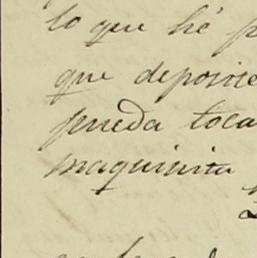 lo que hé p
que deposite
pueda toca
maquinita